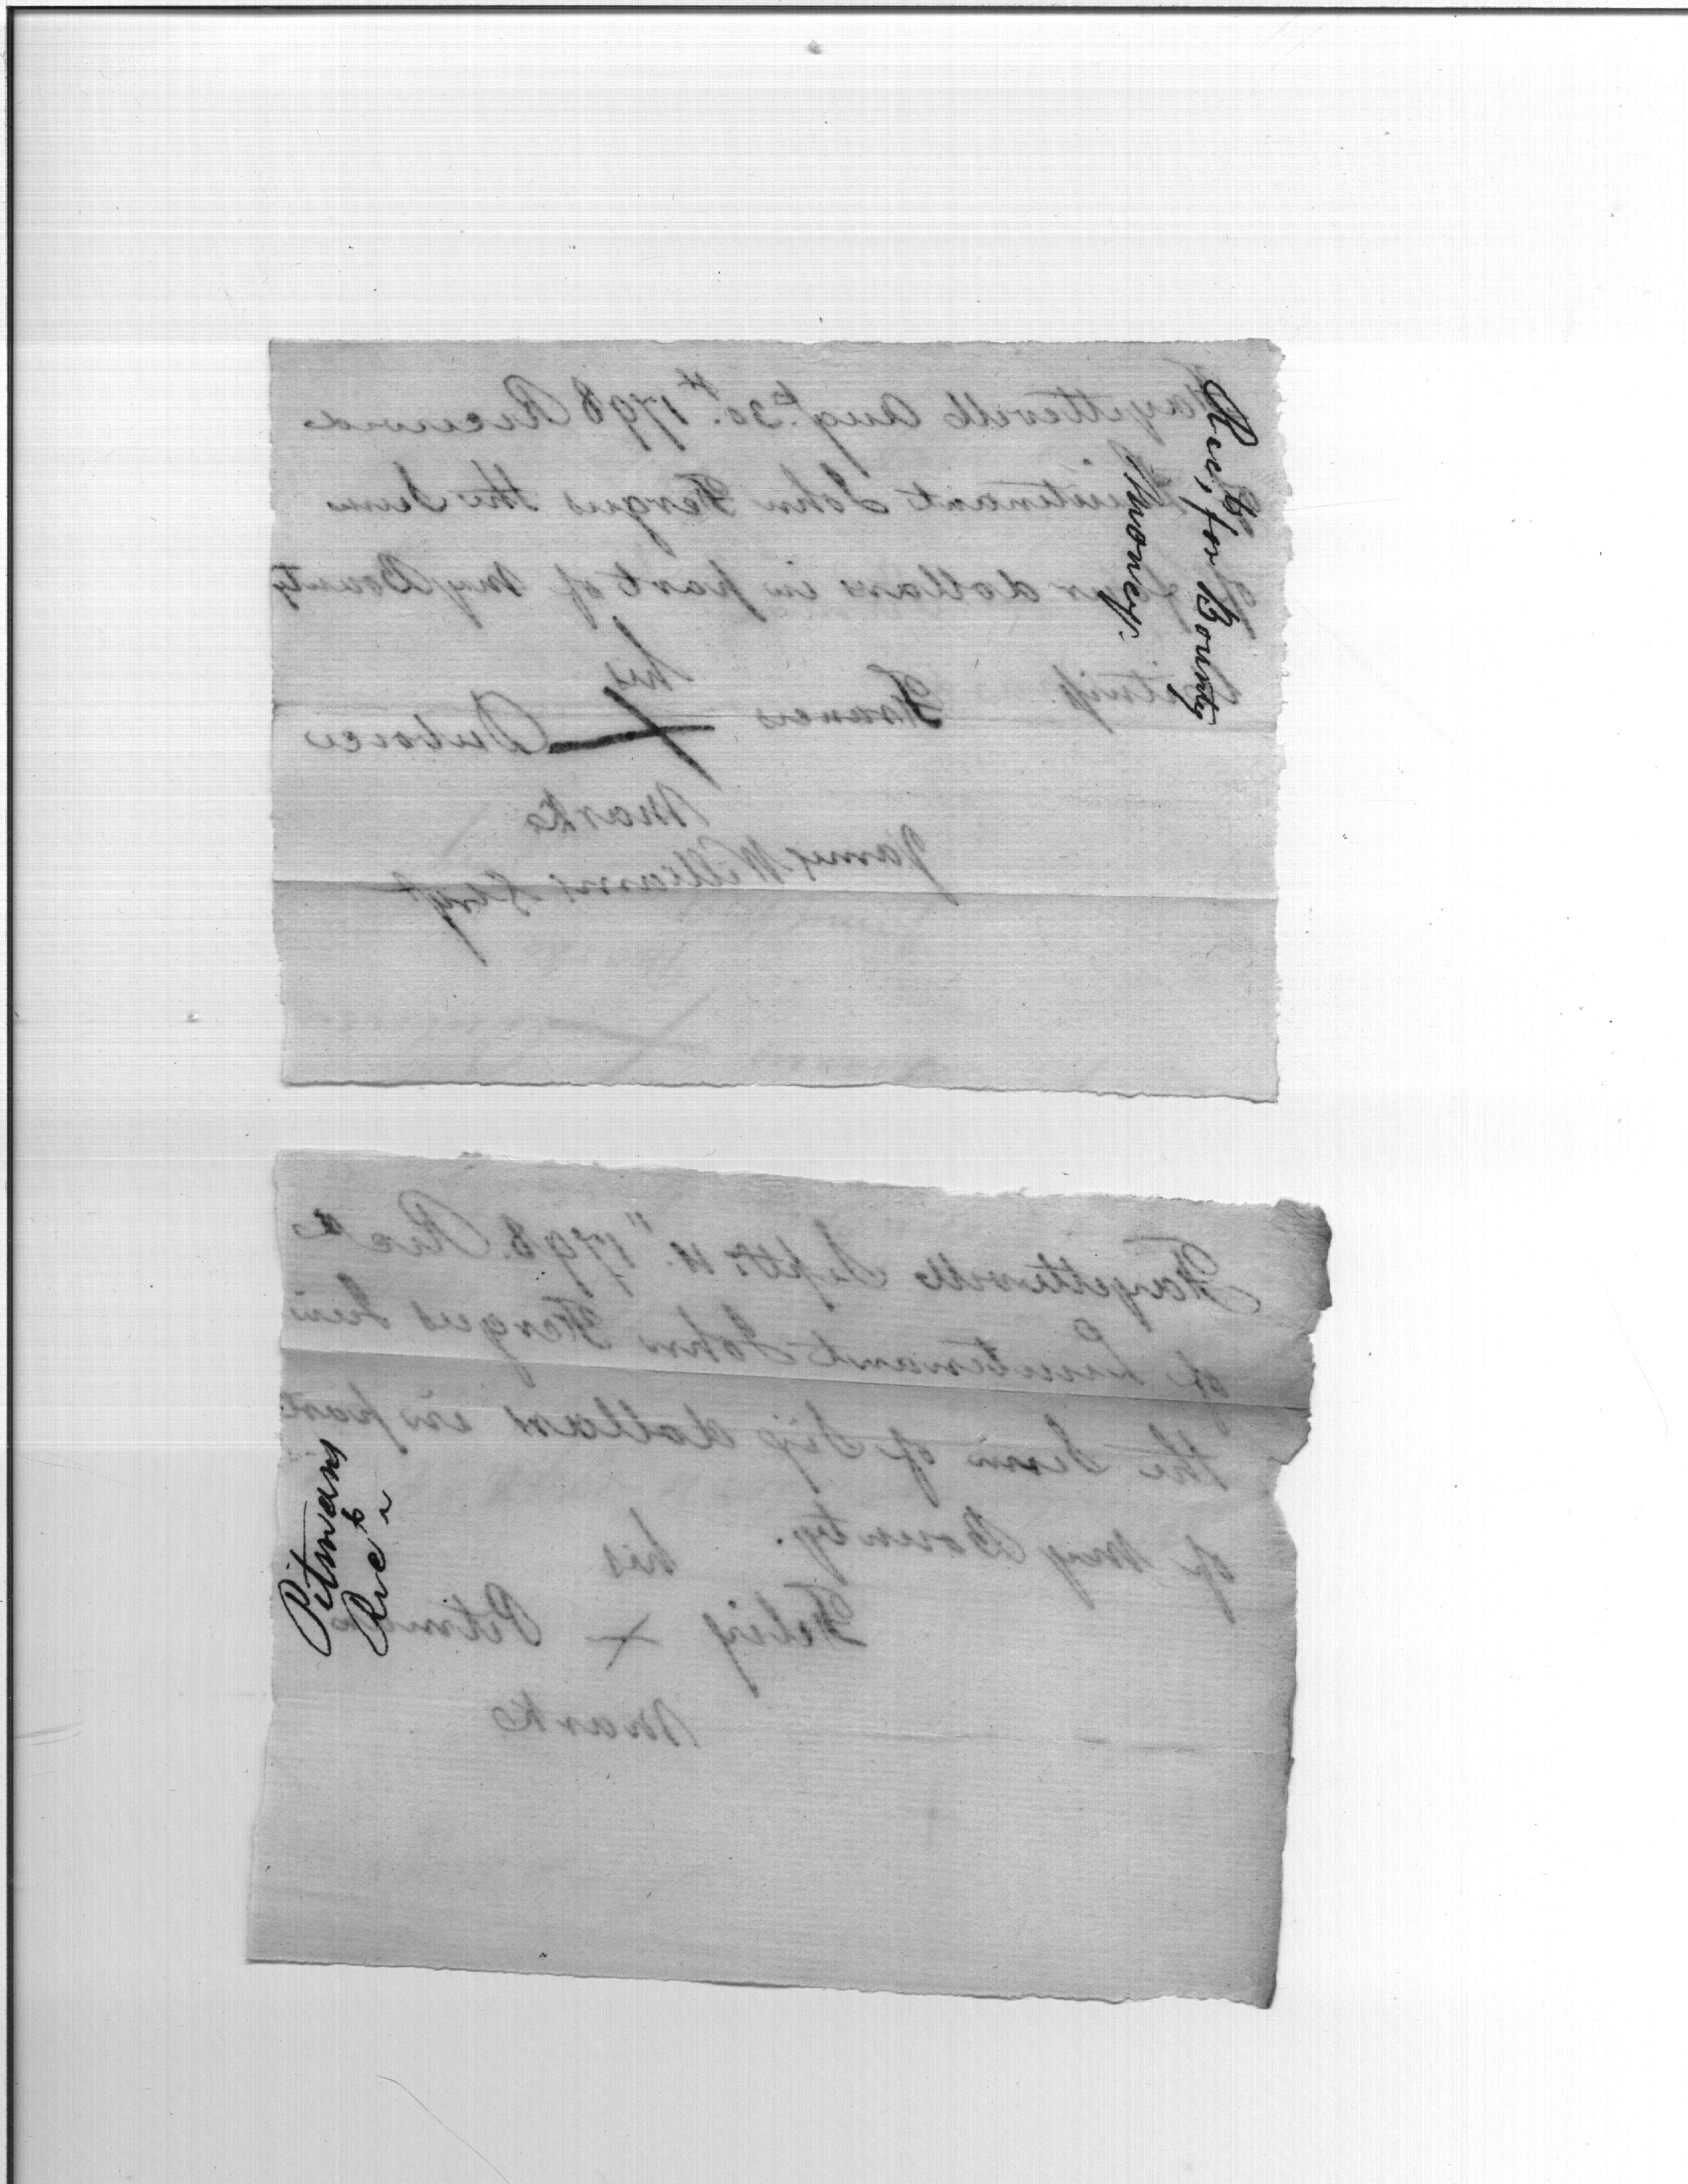 Rect, for Bounty
money.
Fayetteville Augt. 30th. 1798 Received
of Lieutenant John Fergus the Sum
of four dollars in part of my Bounty
Witness
his
Francis X Duboice
Mark
James Williams Sergt
Fayetteville Septr. 11." 1798. Recd
of Lieutenant John Fergus Jun
the Sum of Six dollars in part
of my Bounty.
his
Felix X Pitman
Mark
Pitmans
Rect